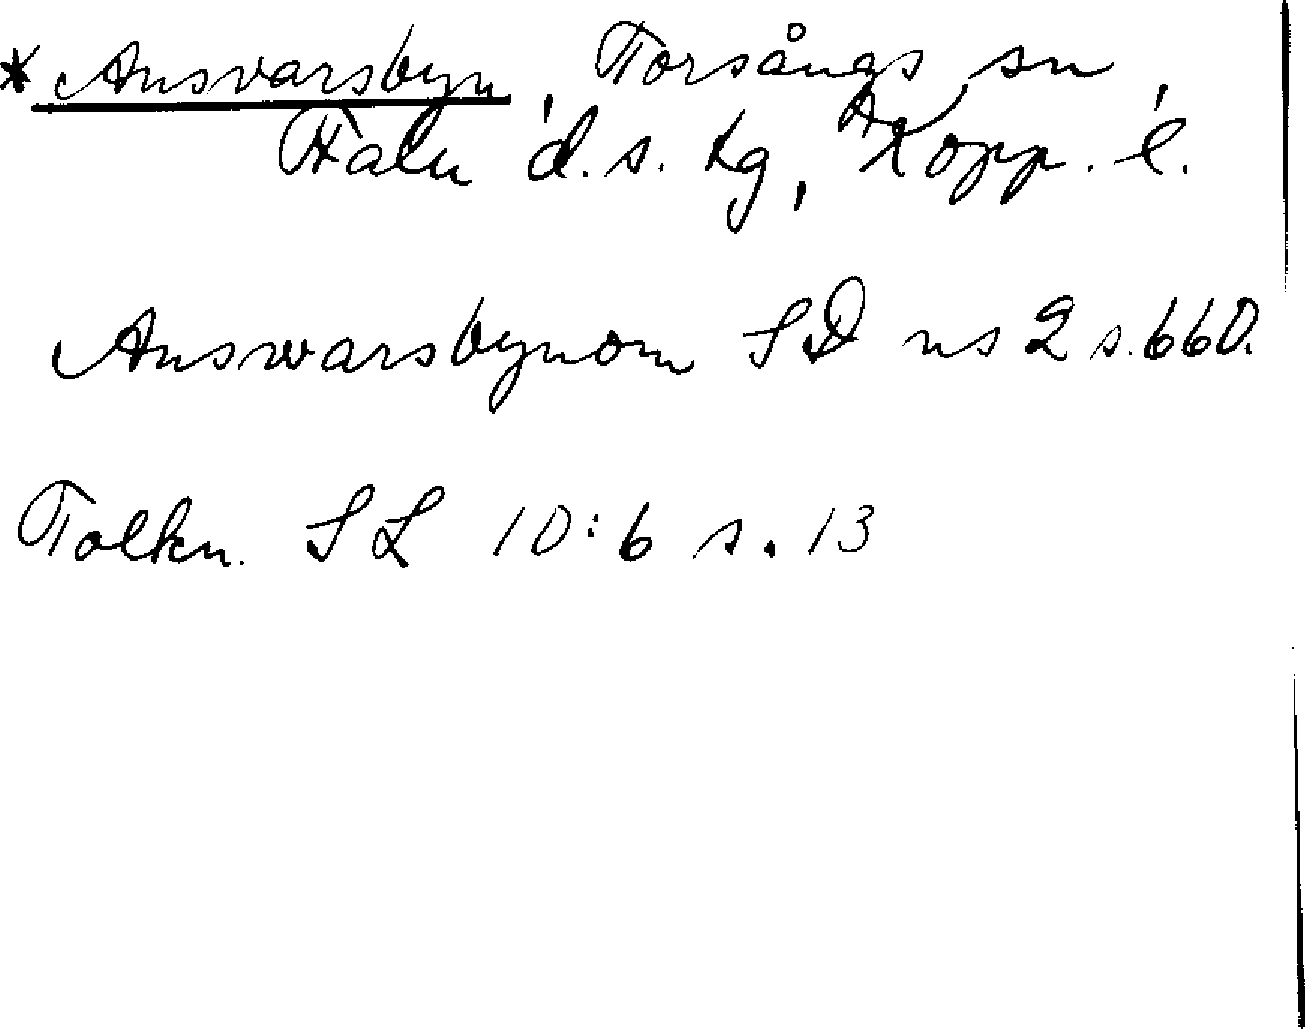 * Ansvarsbyn, Torsångs sn,
Falu d.s. tg, Kopp. l.
Answarsbynom SD ns 2 s. 660.
Tolkn. SL 10:6 s. 13